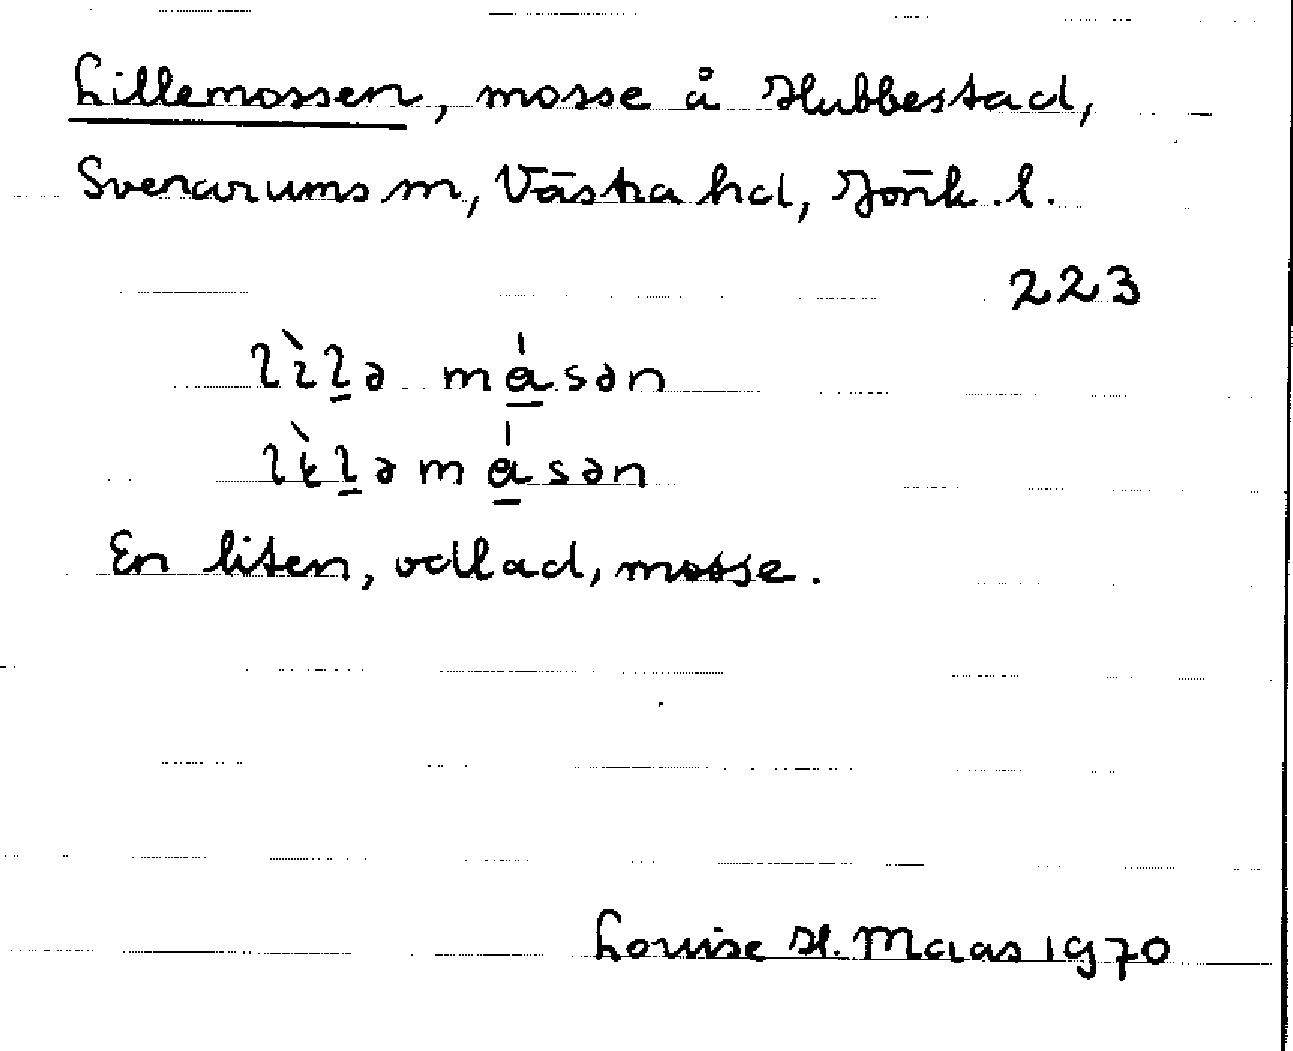 Lillemossen, mosse å Hubbestad,
Svenarums sn, Västra hd, Jönk. l.
223
lìḻə má̱sən
lìḻəmá̱sən
En liten, odlad, mosse.
Louise H. Maas 1970